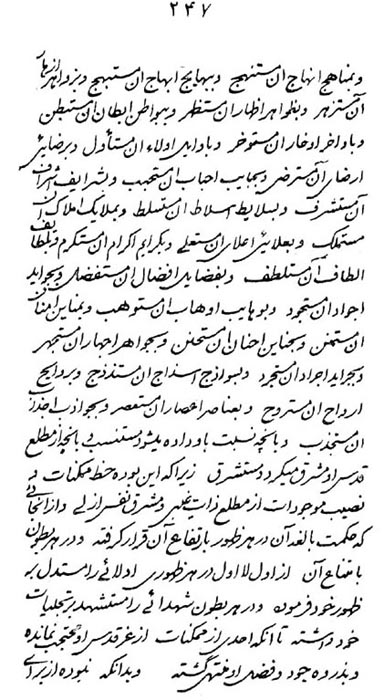 ۲۴۷
و بمناهج انهاج ان مستنهج و ببهایج ابهاج ان مستبهج و بزواهر ازهار
آن مستزهر و بظواهر اظهار ان مستظهر و ببواطن ابطان ان مستبطن
و باواخر اوخار ان مستوخر و باوایل اولاء ان مستأول و برضایئ
ارضای آن مسترضی و بحبایب احباب ان مستحبب و بشرایف اشراف
آن مستشرف و بسلایط اسلاط ان مستسلط و بملایک املاک ان
مستملک و بعلایئ اعلای ان مستعلی و بکرایم اکرام ان مستکرم و بلطایف
الطاف آن مستلطف و بفضایل افضال ان مستفضل و بجواید
اجواد ان مستجود و بوهایب اوهاب ان مستوهب و بمناین امنان
ان مستمنن و بحناین احنان ان مستحنن و بجواهر اجهار ان مستجهر
و بجراید اجراد ان مستجرد و بسواذج اسذاج ان مستذج و بروایح
ارواح ان مستروح و بعناصر اعصار ان مستعصر و بجواذب اجذاب
ان مستجذب و بانچه نسبت باو داده میشود مستنسب و بانچه از مطلع
قدس او مشرق میگردد مستشرق زیرا که این بوده حظ ممکنات و
نصیب موجودات از مطلع ذات غیبی و مشرق نفس ازلی و از آنجائی
که حکمت بالغه آن در هر ظهور بارتفاع آن قرار گرفته و در هر بطون
بامتناع آن از اول لا اول در هر ظهوری ادلائی را مستدل به
ظهور خود فرموده و در هر بطون شهدائی را مستشهد بر تجلیات
خود داشته تا آنکه احدی از ممکنات از عز قدس او محتجب نمانده
و بذروه جود و فضل او منتهی گشته و بدانکه نموده از برای